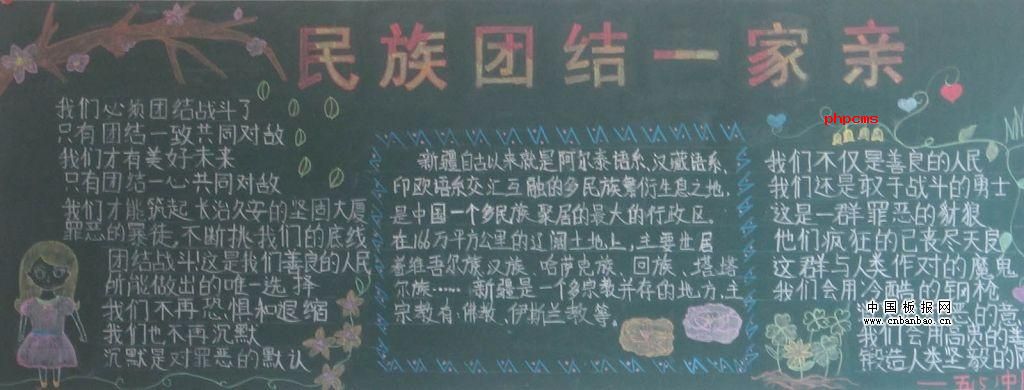 民族团结一家亲
我们必须团结战斗了
只有团结一致共同对敌
我们才有美好未来
只有团结一心共同对敌
我们才能筑起长治久安的坚固大厦
罪恶的暴徒,不断挑我们的底线
团结战斗!这是我们善良的人民
所能做出的唯一选择
我们不再恐惧和退缩
我们也不再沉默
沉默是对罪恶的默认
新疆自古以来就是阿尔泰语系、汉藏语系、
印欧语系交汇互融的多民族繁衍生息之地,
是中国一个多民族聚居的最大的行政区.
在166万平方公里的辽阔土地上,主要世居
着维吾尔族、汉族、哈萨克族、回族、塔塔
尔族……新疆是一个多宗教并存的地方,主
宗教有:佛教、伊斯兰教等。
phpcms
我们不仅是善良的人民
我们还是敢于战斗的勇士
这是一群罪恶的豺狼
他们疯狂的已丧尽天良
这群与人类作对的魔鬼
我们会用冷酷的钢枪
恶的意
我们会用高贵的善
锻造人类坚毅的
中国板报网
www.cnbanbao.cn